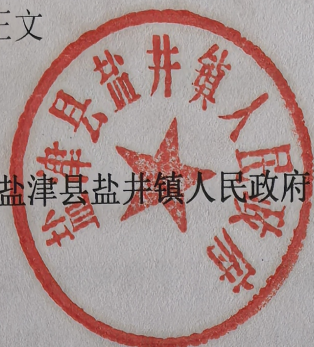 正文
盐津县盐井镇人民政府
盐津县盐井镇人民政府